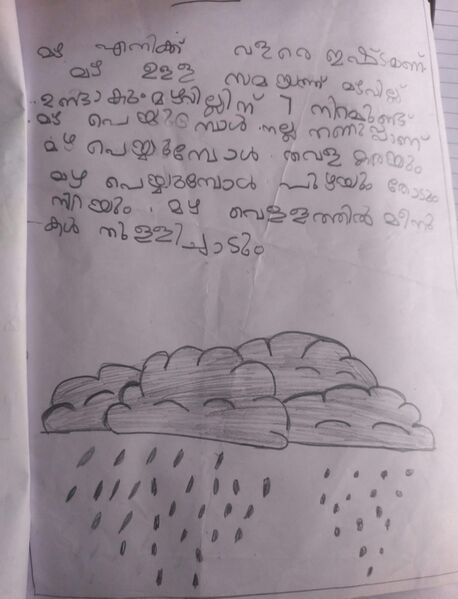 മഴ എനിക്ക് വളരെ ഇഷ്ടമാണ്
മഴ ഉള്ള സമയത്ത് മഴവില്ല്
ഉണ്ടാകും മഴവില്ലിന് 7 നിറമുണ്ട്
മഴ പെയ്യുമ്പോൾ നല്ല തണുപ്പാണ്
മഴ പെയ്യുമ്പോൾ തവള കരയും
മഴ പെയ്യുമ്പോൾ പുഴയും തോടും
നിറയും . മഴ വെള്ളത്തിൽ മീനു
കൾ തുള്ളിച്ചാടും